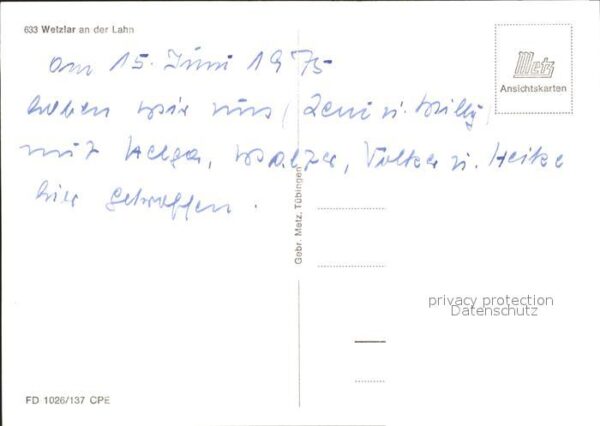 633 Wetzlar an der Lahn
Metz
Ansichtskarten
am 15. Juni 1975
haben wir uns (Leni u. Willy)
mit Helga, Walter, Volker u. Heike
hier getroffen.
Gebr. Metz, Tübingen
privacy protection
Datenschutz
FD 1026/137 CPE